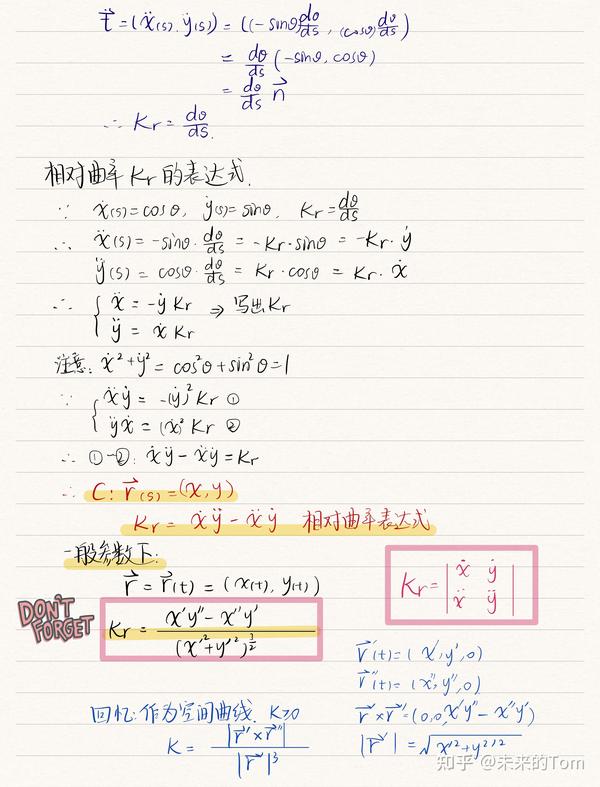 ṫ⃗ = (ẍ(s), ÿ(s)) = ((-sinθ)dθ/ds, (cosθ)dθ/ds)
= dθ/ds (-sinθ, cosθ)
= dθ/ds n⃗
∴ Kr = dθ/ds.
相对曲率 Kr 的表达式.
∵ ẋ(s) = cosθ, ẏ(s) = sinθ, Kr = dθ/ds
∴ ẍ(s) = -sinθ · dθ/ds = -Kr · sinθ = -Kr · ẏ
ÿ(s) = cosθ · dθ/ds = Kr · cosθ = Kr · ẋ
∴ { ẍ = -ẏ Kr ⇒ 写出Kr
ÿ = ẋ Kr
注意: ẋ² + ẏ² = cos²θ + sin²θ = 1
∵ { ẍẏ = -(ẏ)² Kr ①
ÿẋ = (ẋ)² Kr ②
∴ ①-②: ẋÿ - ẍẏ = Kr
∴ C: r⃗(s) = (x, y)
Kr = ẋÿ - ẍẏ 相对曲率表达式
一般参数下:
r⃗ = r⃗(t) = (x(t), y(t))
Kr = | ẋ ẏ |
| ẍ ÿ |
DON'T
FORGET
Kr = (x'y'' - x''y') / (x'² + y'²)^(3/2)
r⃗'(t) = (x', y', 0)
r⃗''(t) = (x'', y'', 0)
r⃗' × r⃗'' = (0, 0, x'y'' - x''y')
|r⃗'| = √(x'² + y²'²)
回忆: 作为空间曲线. K≥0
K = |r⃗' × r⃗''| / |r⃗'|³
知乎 @未来的Tom